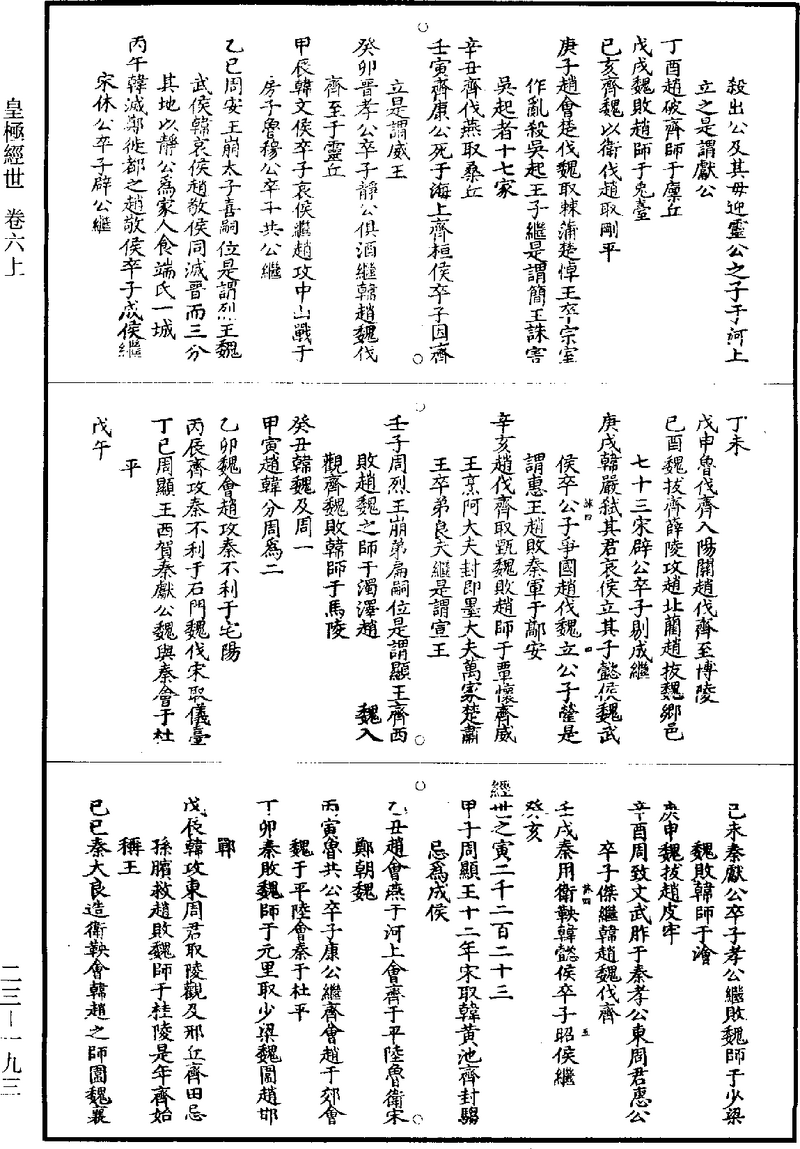 皇極經世 卷六上
殺出公及其母迎靈公之子于河上
立之是謂獻公
丁酉趙破齊師于廩丘
戊戌魏敗趙師于兎臺
己亥齊魏以衛伐趙取剛平
庚子趙會楚伐魏取棘蒲楚悼王卒宗室
作亂殺吳起王子繼是謂簡王誅害
吳起者十七家
辛丑齊伐燕取桑丘
壬寅齊康公死于海上齊桓侯卒子因齊
立是謂威王
癸卯晉孝公卒子靜公俱酒繼韓趙魏伐
齊至于靈丘
甲辰韓文侯卒子哀侯繼趙攻中山戰于
房子魯穆公卒子共公繼
乙巳周安王崩太子喜嗣位是謂烈王魏
武侯韓哀侯趙敬侯同滅晉而三分
其地以靜公爲家人食端氏一城
丙午韓滅鄭徙都之趙敬侯卒子成侯繼
宋休公卒子辟公繼
丁未
戊申魯伐齊入陽關趙伐齊至博陵
己酉魏拔齊薛陵攻趙北藺趙拔魏鄉邑
七十三宋辟公卒子剔成繼
庚戌韓嚴弑其君哀侯立其子懿侯魏武
侯卒公子爭國趙伐魏立公子罃是
謂惠王趙敗秦軍于鄗安
辛亥趙伐齊取甄魏敗趙師于覃懷齊威
王烹阿大夫封即墨大夫萬家楚肅
王卒弟良夫繼是謂宣王
壬子周烈王崩弟扁嗣位是謂顯王齊西
敗趙魏之師于濁澤趙 魏入
觀齊魏敗韓師于馬陵
癸丑韓魏及周一
甲寅趙韓分周爲二
乙卯魏會趙攻秦不利于宅陽
丙辰齊攻秦不利于石門魏伐宋取儀臺
丁巳周顯王西賀秦獻公魏與秦會于杜
平
戊午
己未秦獻公卒子孝公繼敗魏師于少梁
魏敗韓師于澮
庚申魏拔趙皮牢
辛酉周致文武胙于秦孝公東周君惠公
卒子傑繼韓趙魏伐齊
壬戌秦用衛鞅韓懿侯卒子昭侯繼
癸亥
經世之寅二千二百二十三
甲子周顯王十二年宋取韓黃池齊封騶
忌爲成侯
乙丑趙會燕于河上會齊于平陸魯衛宋
鄭朝魏
丙寅魯共公卒子康公繼齊會趙于郊會
魏于平陸會秦于杜平
丁卯秦敗魏師于元里取少梁魏圍趙邯
鄲
戊辰韓攻東周君取陵觀及邢丘齊田忌
孫臏救趙敗魏師于桂陵是年齊始
稱王
己巳秦大良造衛鞅會韓趙之師圍魏襄
二三—一九三